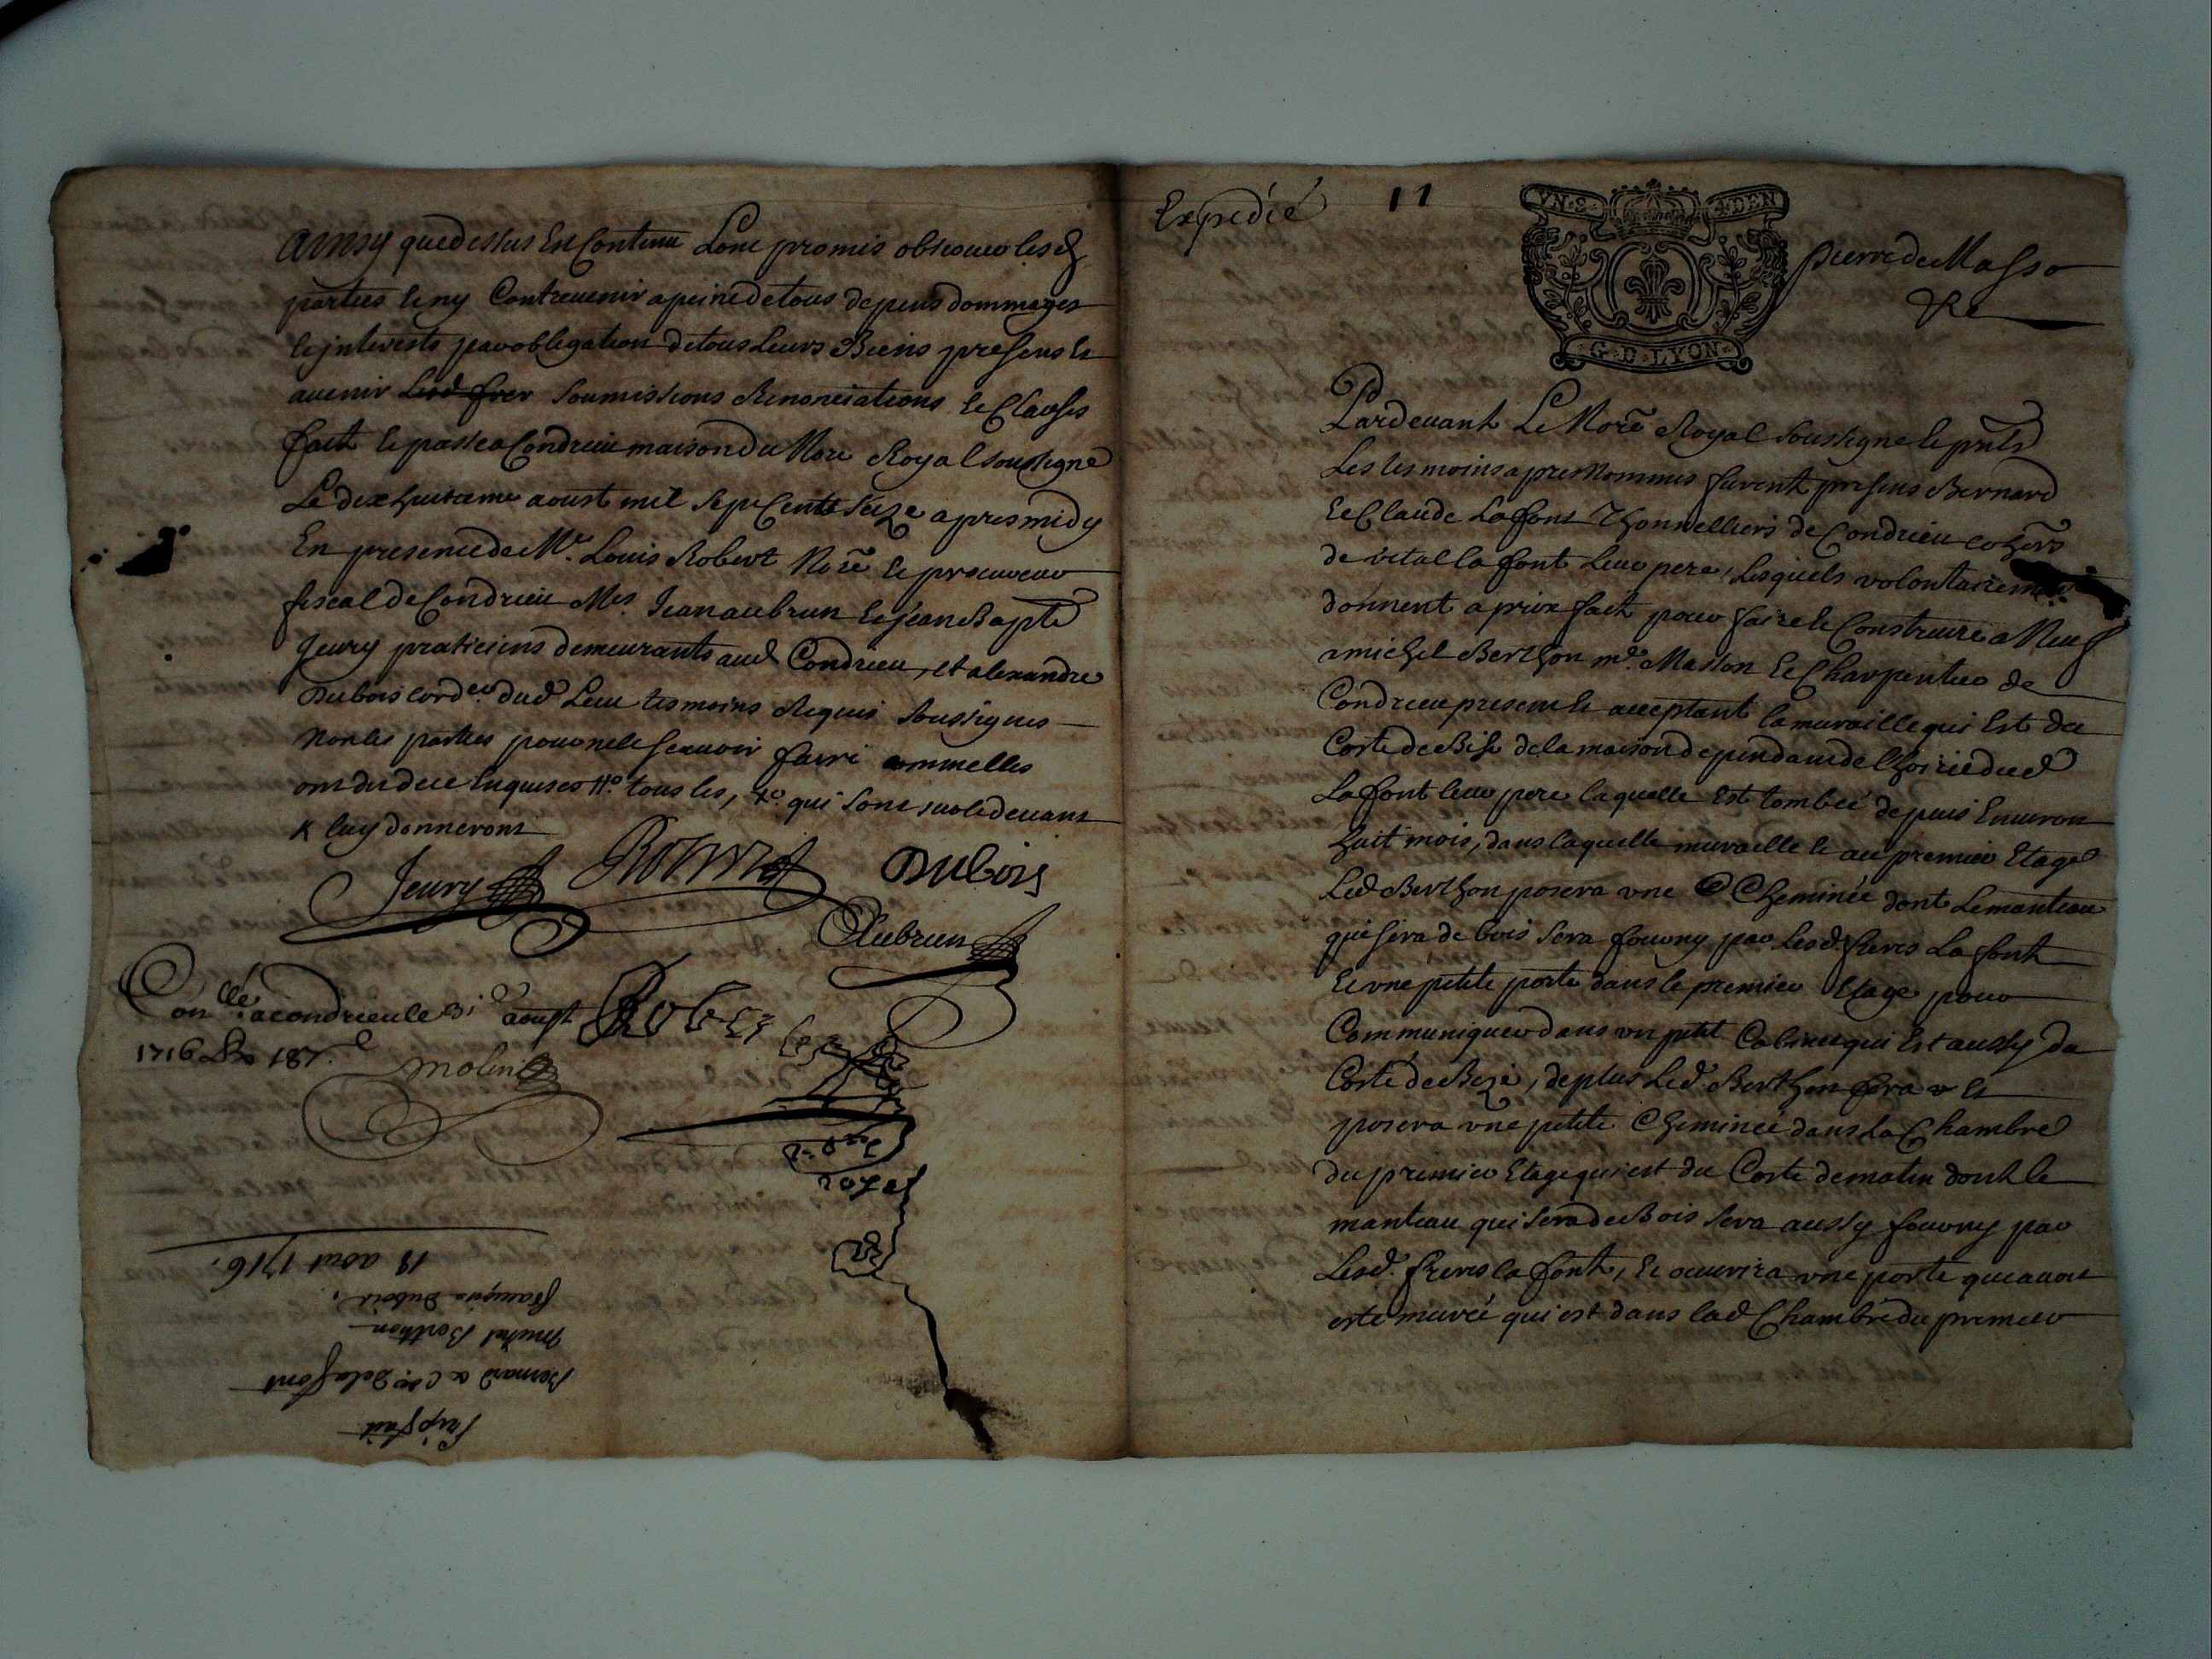 ainsy que dessus Est Contenu L'ont promis observer lesd
parties & ny Contrevenir a peine de tous depens dommages
& interests par obligation de tous Leurs Biens presens &
avenir soumissions Renonciations & Clauses
fait & passé a Condrieu maison du Nore Royal soussigné
Le dix huitieme aoust mil sept Cents seize apres midy
En presence de Me. Louis Robert Nore & procureur
fiscal de Condrieu Mes Jean aubrun & Jean Bapte
Jeury praticiens demeurants aud Condrieu, et alexandre
Dubois cord.er dud Lieu tesmoins Requis soussignes
non les parties pour ne le scavoir faire
ont dit de ce Enquises tous les, qui sont sur le devant
x luy donneront
Jeury Robert Dubois
Aubrun
Con.llé a condrieu le 31 aoust
1716 187.
molin
Robert
Nore
royal
18 aout 1716.
françois Dubois.
Michel Berthon
Bernard & Cde Delafont
Prixfait
Expedié 11
VN·S· 4·DEN
·G·D·LYON·
pierre du Masso
Pardevant Le Nore Royal soussigné & pnts
Les tesmoins apres Nommes furent presens Bernard
& Claude Lafont Thonnelliers de Condrieu cohers
de vital lafont Leur pere, Lesquels volontairement
donnent a prix fait pour faire & Construire a Neuf
a michel Berthon md. Masson & Charpentier de
Condrieu present & acceptant la muraille qui Est du
Costé de Bise de la maison dependant de l'hoirie dud
Lafont leur pere laquelle Est tombeé depuis Environ
huit mois, dans laquelle muraille & au premier Etage
Led Berthon posera une Cheminée dont Le manteau
qui sera de bois sera fourny par Lesd. freres La font
& une petite porte dans le premier Etage pour
Communiquer dans un petit Cabinet qui Est aussy du
Costé de Bize, de plus Led. Berthon fera &
posera une petite Cheminée dans La Chambre
du premier Etage qui est du Costé de matin dont le
manteau qui sera de Bois sera aussy fourny par
Lesd. freres la font, & ouvrira une porte qui avoit
esté mureé qui est dans lad Chambre du premier